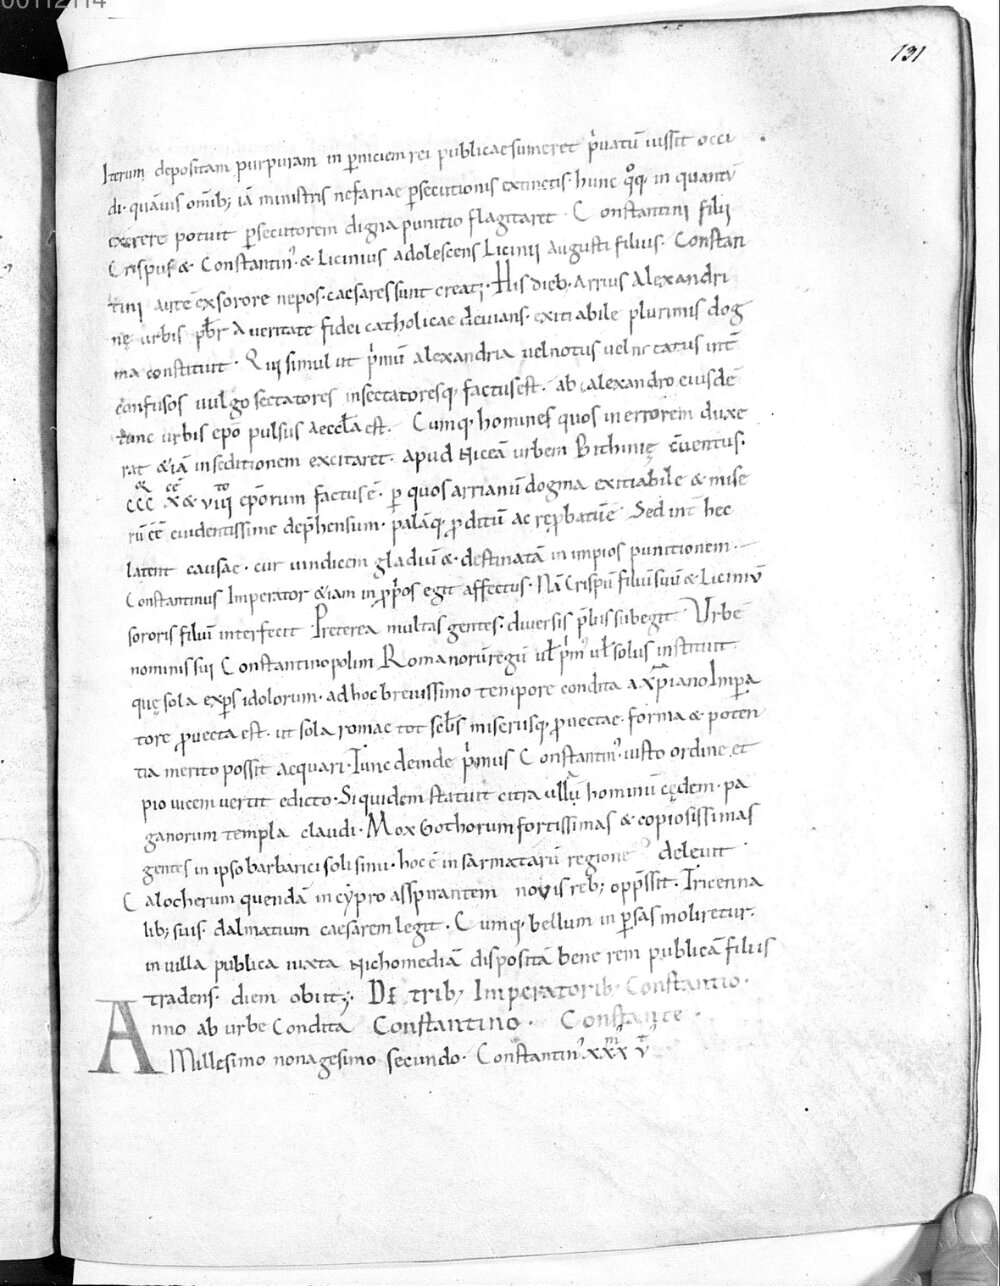 00112114
131
Iterum depositam purpuram in p̄niciem rei publicae sumeret p̍uatū iussit occi
di· quāuis omīb; iā ministris nefariae p̄secutionis extinctis· hunc q̊q; in quantū
exerere potuit p̄secutorem digna punitio flagitaret· Constantini filii
Crispus & Constantin᾽ & Licinius adolescens Licinii augusti filius· Constan
tini autē ex sorore nepos· caesares sunt creati; His dieb; Arrius Alexandri
nę urbis pb̄r A ueritate fidei catholicae deuians· exitiabile plurimis dog
ma constituit· Qui simul ut p̍mū alexandria uel notus uel notatus int̄
confusos uulgo sectatores insectatoresq; factus est· ab alexandro eiusdē
tunc urbis ep̄o pulsus aeccl̄a est· Cumq; homines quos in errorem duxe
rat &iā in seditionem excitaret· apud Niceā urbem Bithinię c̄uentus·
CCC X & VIII ep̄orum factus ē· p̄ quos arrianū dogma exitiabile & mise
rū ēē euidentissime dep̄hensum· palāq; p̄ditū ac rep̄batū ē· Sed int̄ hec
latent causae· cur uindicem gladiū & destinatā in impios punitionem·
Constantinus Imperator &iam in p̄p̍os egit affectus· Nā Crispū filiū suū & Liciniū
sororis filiū interfecit· Preterea multas gentes· diuersis p̄liis subegit· Urbē
nominis sui Constantinopolim Romanorū regū ul̄ p̍m᾽ ul̄ solus instituit·
quę sola exp̄s idolorum· ad hoc breuissimo tempore condita a xp̄iano Imp̄a
tore p̄uecta est· ut sola romae tot sel̄is miseriisq; p̄uectae· forma & poten
tia merito possit aequari· Tunc deinde p̍mus Constantin᾽ iusto ordine et
pio uicem uertit edicto· Siquidem statuit citra ullā hominū cędem· pa
ganorum templa claudi· Mox Gothorum fortissimas & copiosissimas
gentes in ipso barbarici soli sinu· hoc ē in sarmatarū regione deleuit·
Calocherum quendā in cypro asspirantem nouis reb; opp̄ssit· Tricenna
lib; suis· dalmatium caesarem legit· Cumq; bellum in p̄sas moliretur·
in uilla publica iuxta Nichomediā dispositā bene rem publicā filiis
tradens· diem obiit; DE trib; Imperatorib; Constantio·
Anno ab urbe Condita Constantino· Constante·
Millesimo nonagesimo secundo· Constantin᾽ xxx v